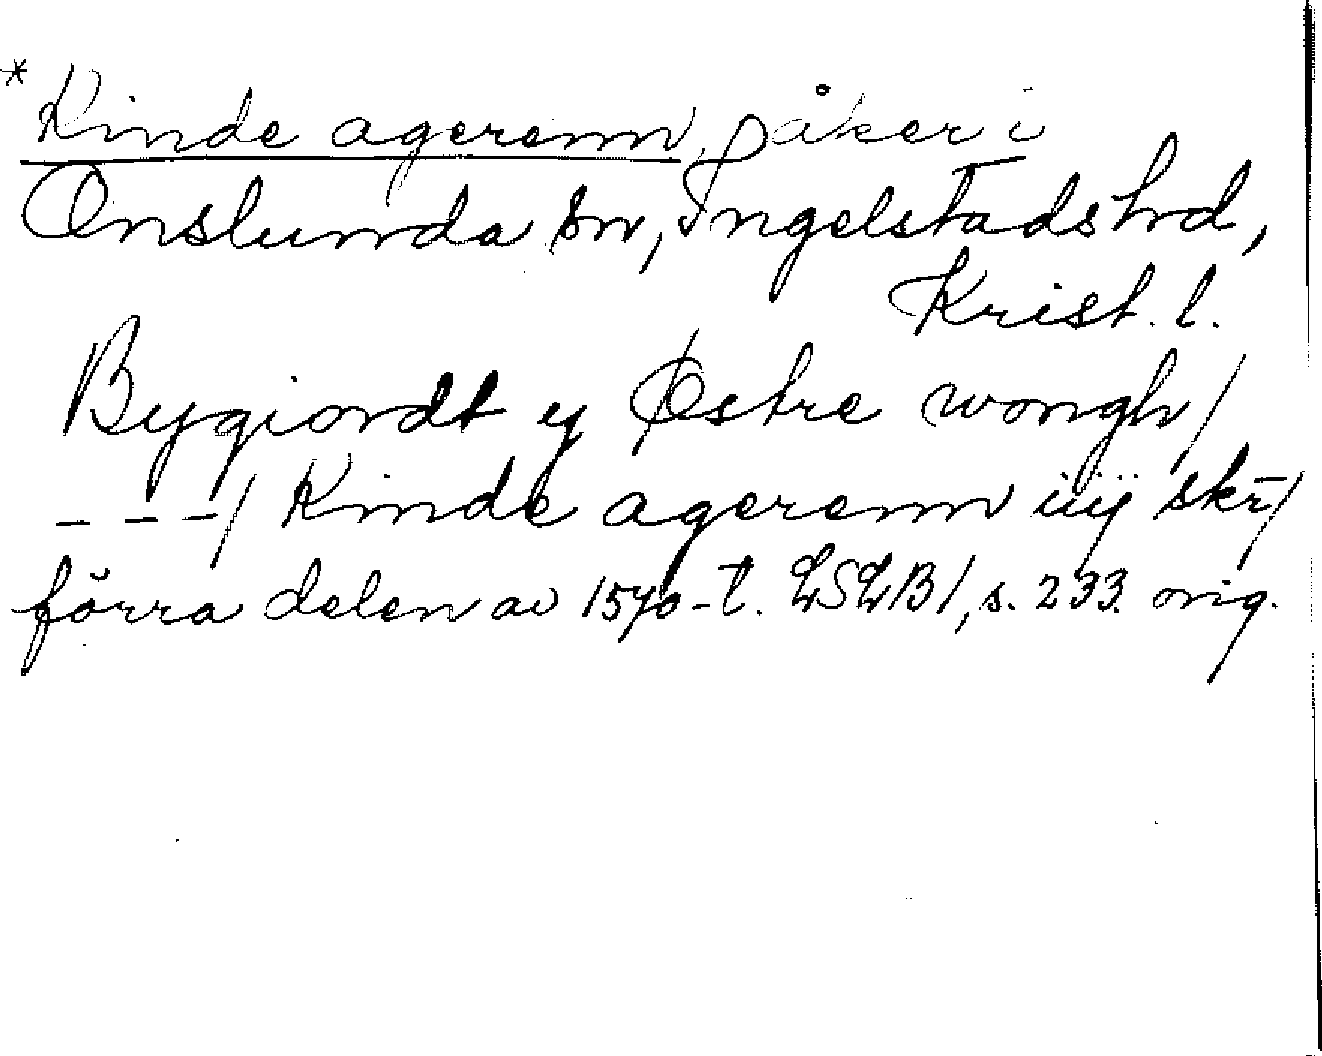 *Kinde agerenn, åker i
Onslunda sn, Ingelstads hd,
Krist. l.
Bygiordt y Østre wongh/
---/ Kinde agerenn iiij skr/
förra delen av 1570-t. LSLB1, s. 233. orig.